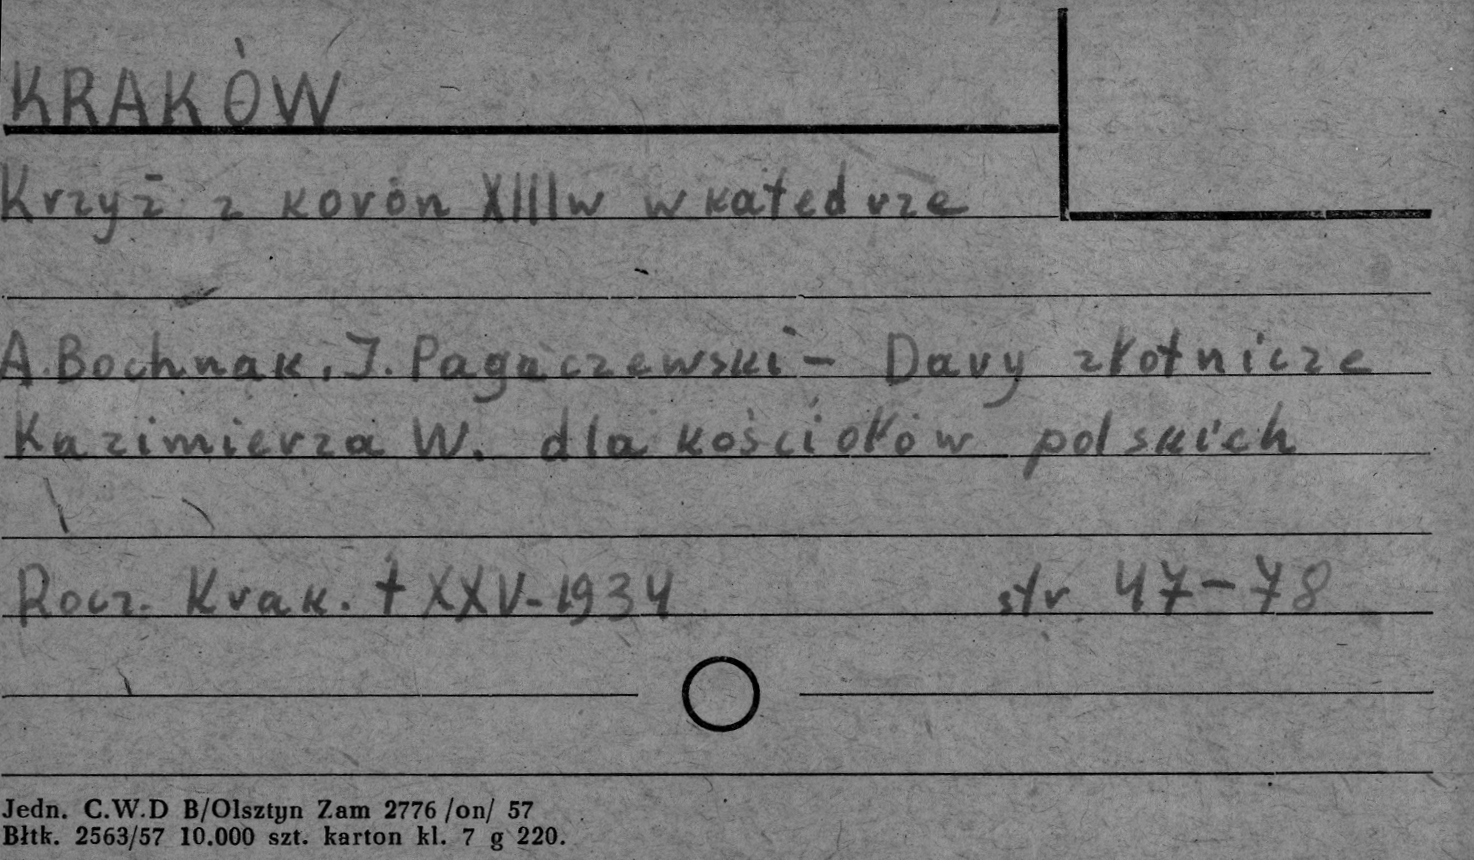 KRAKÓW
Krzyż z koron XIII w w katedrze
A. Bochnak, J. Pagaczewski - Dary złotnicze
Kazimierza W. dla kościołów polskich
Rocz. Krak. t XXV-1934 str 47-78
Jedn. C.W.D B/Olsztyn Zam 2776 /on/ 57
Błtk. 2563/57 10.000 szt. karton kl. 7 g 220.